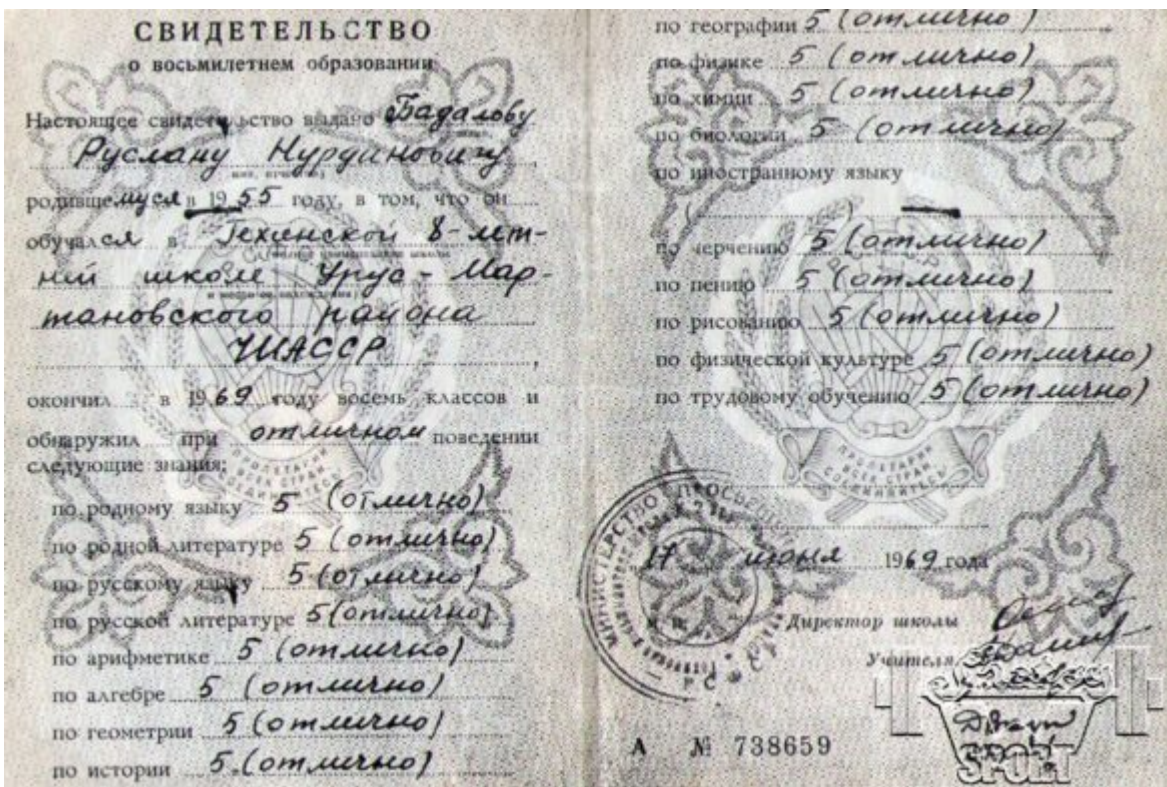 СВИДЕТЕЛЬСТВО
о восьмилетнем образовании
Настоящее свидетельство выдано Бадалову
Руслану Нурдиновичу
родившемуся в 1955 году, в том, что он
обучался в Гехинской 8-лет-
ней школе Урус-Мар-
тановского района
ЧИАССР
окончил в 1969 году восемь классов и
обнаружил при отличном поведении
следующие знания:
по родному языку 5 (отлично)
по родной литературе 5 (отлично)
по русскому языку 5 (отлично)
по русской литературе 5 (отлично)
по арифметике 5 (отлично)
по алгебре 5 (отлично)
по геометрии 5 (отлично)
по истории 5 (отлично)
по географии 5 (отлично)
по физике 5 (отлично)
по химии 5 (отлично)
по биологии 5 (отлично)
по иностранному языку
( ) —
по черчению 5 (отлично)
по пению 5 (отлично)
по рисованию 5 (отлично)
по физической культуре 5 (отлично)
по трудовому обучению 5 (отлично)
ПРОЛЕТАРИИ
ВСЕХ СТРАН
СОЕДИНЯЙТЕСЬ
МИНИСТЕРСТВО ПРОСВЕЩЕНИЯ
17 июня 1969 года
М. П.
Директор школы
Учителя
А № 738659
SPORT